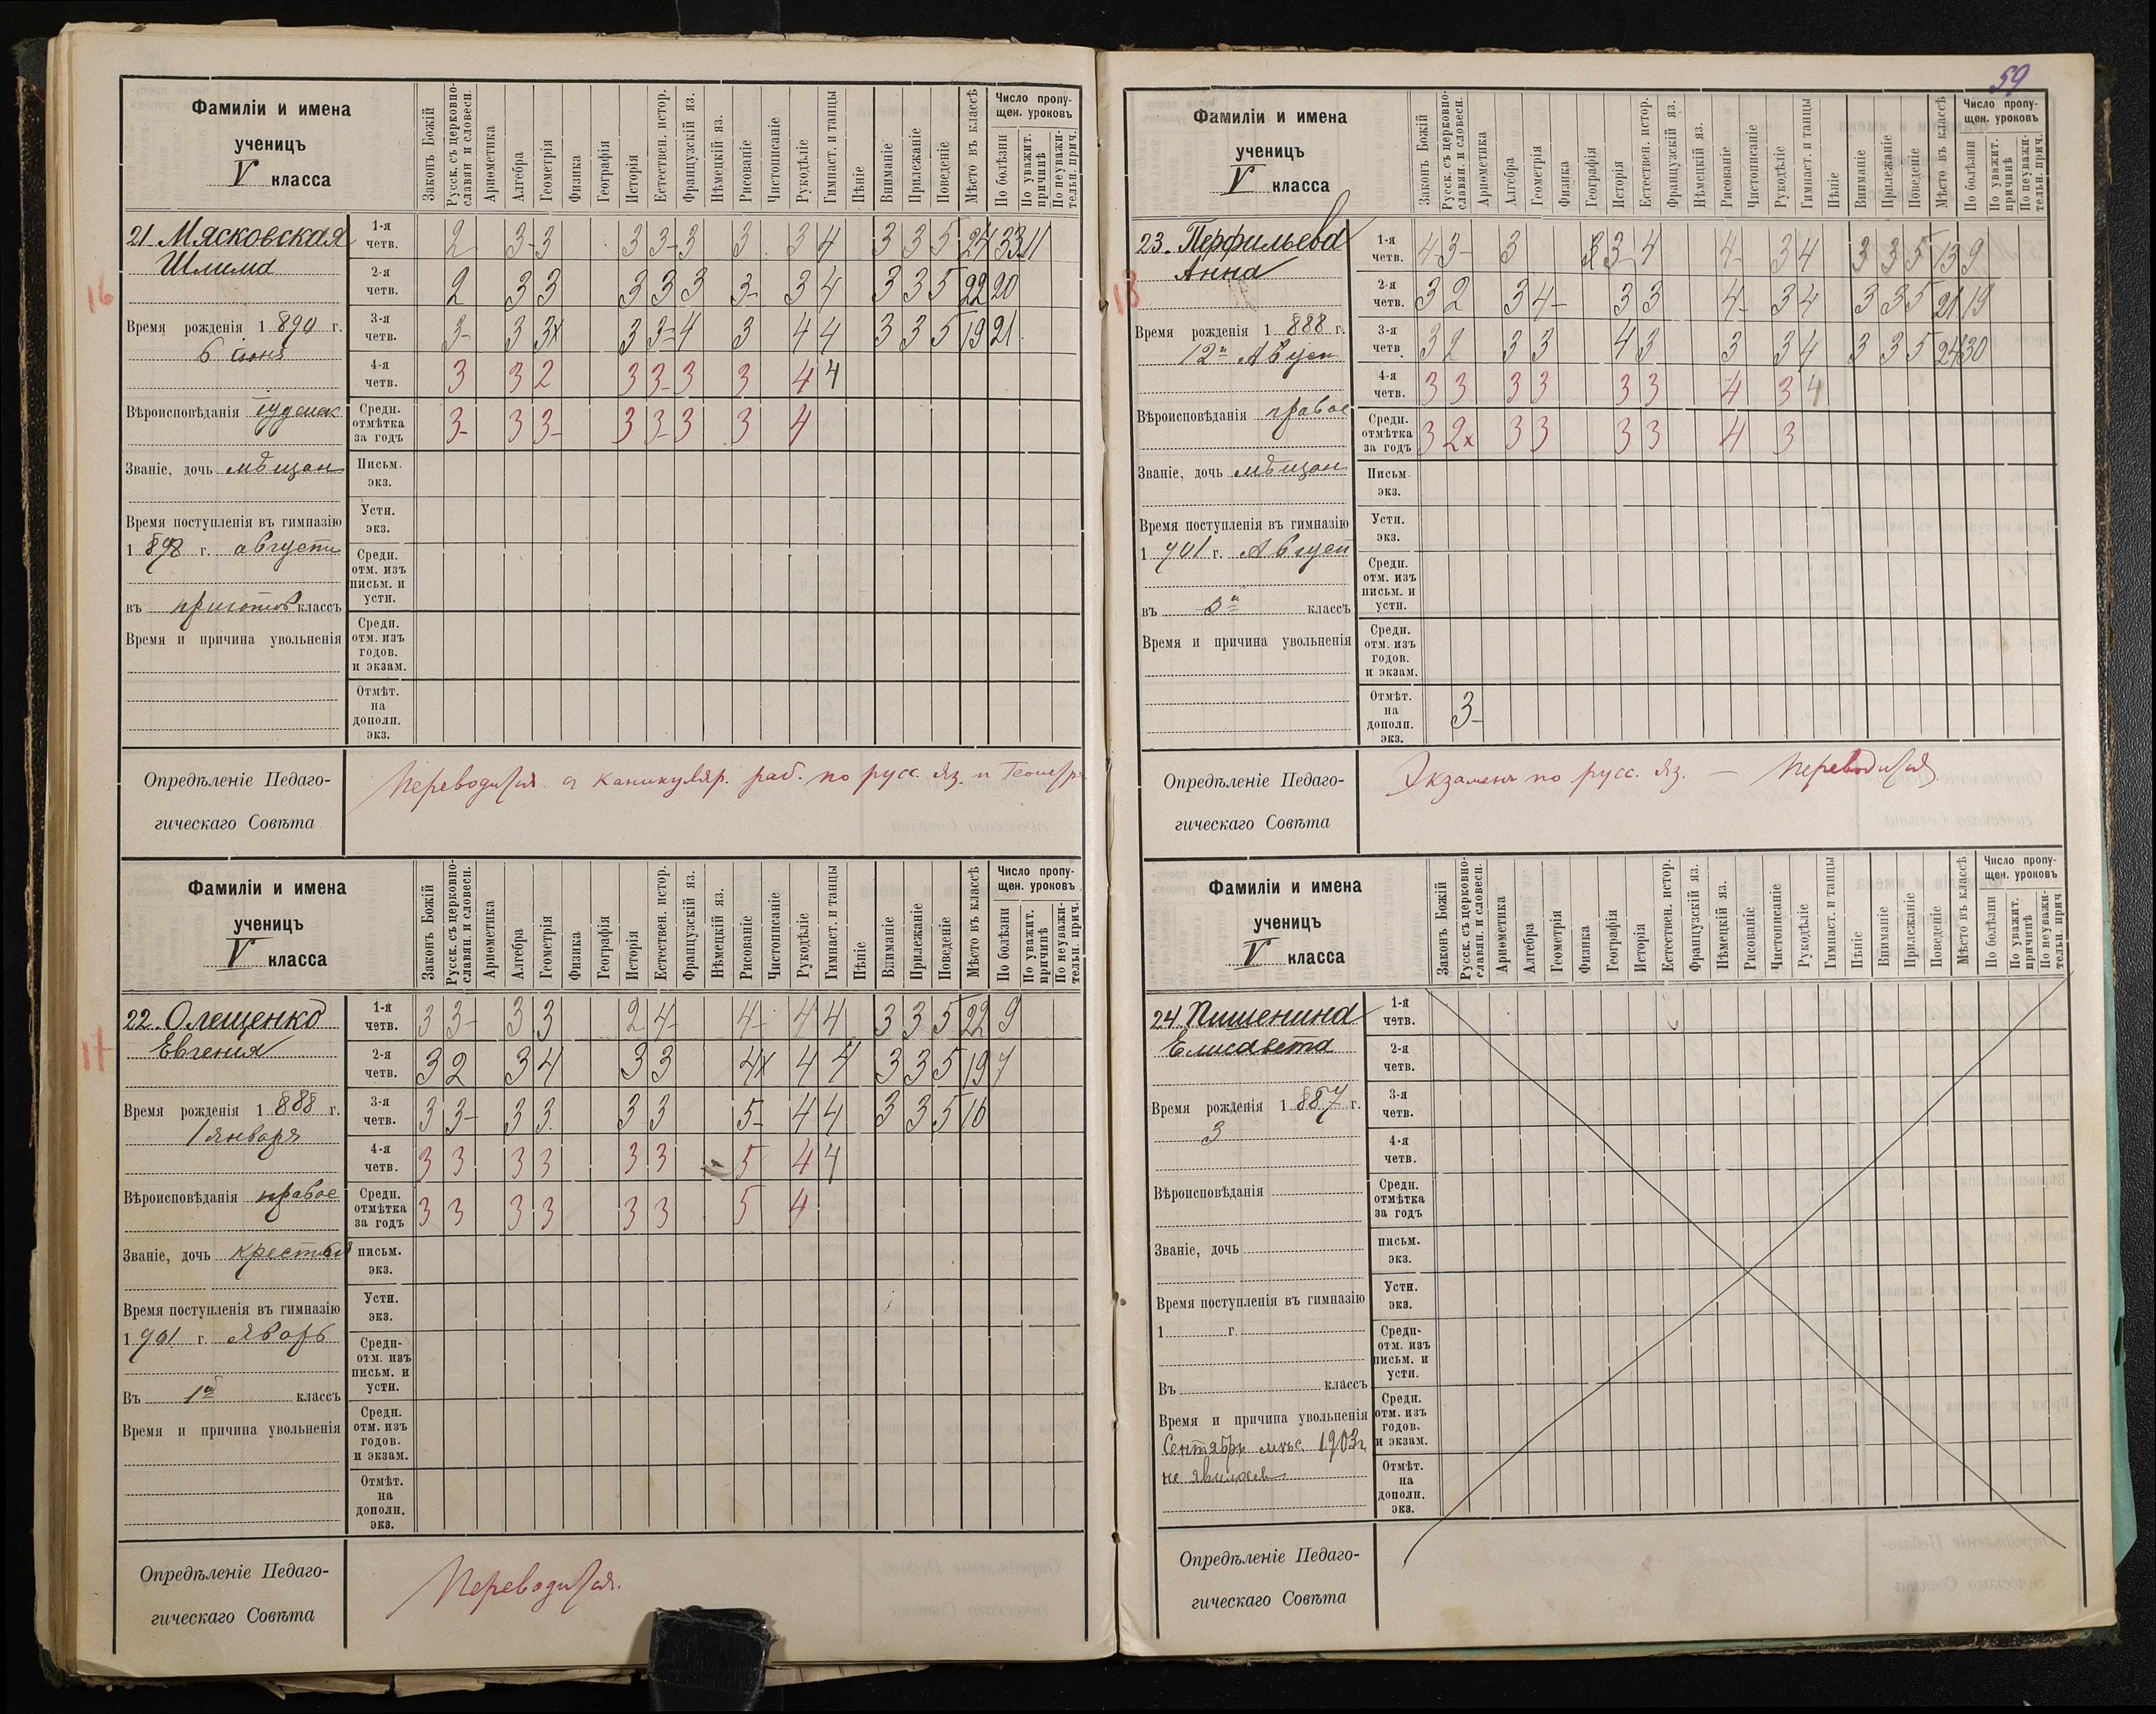 59
Фамиліи и имена
ученицъ
V класса
Законъ Божій
Русск. съ церковно-
славян. и словесн.
Ариѳметика
Алгебра
Геометрія
Физика
Географія
Исторія
Естествен. истор.
Французскій яз.
Нѣмецкій яз.
Рисованіе
Чистописаніе
Рукодѣліе
Гимнаст. и танцы
Пѣніе
Вниманіе
Прилежаніе
Поведеніе
Мѣсто въ классѣ
Число пропу-
щен. уроковъ
По болѣзни
По уважит.
причинѣ
По неуважи-
тельн. прич.
21 Мясковская
Шлима
16
Время рожденія 1890 г.
6 іюня
Вѣроисповѣданія іудейск
Званіе, дочь мѣщан
Время поступленія въ гимназію
1898 г. августъ
въ приготов классъ
Время и причина увольненія
1-я четв. 2 3- 3 3 3- 3 3 3 4 3 3 5 24 33 11
2-я четв. 2 3 3 3 3 3 3- 3 4 3 3 5 22 20
3-я четв. 3- 3 3x 3 3- 4 3 4 4 3 3 5 19 21
4-я четв. 3 3 2 3 3- 3 3 4 4
Средн. отмѣтка за годъ 3- 3 3- 3 3- 3 3 4
Письм. экз.
Устн. экз.
Средн. отм. изъ письм. и устн.
Средн. отм. изъ годов. и экзам.
Отмѣт. на дополн. экз.
Опредѣленіе Педаго-
гическаго Совѣта
Переводится съ каникуляр. раб. по русс. яз. и Геометр.
Фамиліи и имена
ученицъ
V класса
Законъ Божій
Русск. съ церковно-
славян. и словесн.
Ариѳметика
Алгебра
Геометрія
Физика
Географія
Исторія
Естествен. истор.
Французскій яз.
Нѣмецкій яз.
Рисованіе
Чистописаніе
Рукодѣліе
Гимнаст. и танцы
Пѣніе
Вниманіе
Прилежаніе
Поведеніе
Мѣсто въ классѣ
Число пропу-
щен. уроковъ
По болѣзни
По уважит.
причинѣ
По неуважи-
тельн. прич.
22. Олещенко
Евгенія
17
Время рожденія 1888 г.
1 января
Вѣроисповѣданія правос
Званіе, дочь крестьян
Время поступленія въ гимназію
1901 г.
Въ 1й классъ
Время и причина увольненія
1-я четв. 3 3- 3 3 2 4- 4- 4 4 3 3 5 22 9
2-я четв. 3 2 3 4 3 3 4x 4 4 3 3 5 19 7
3-я четв. 3 3- 3 3 3 3 5- 4 4 3 3 5 16
4-я четв. 3 3 3 3 3 3 5 4 4
Средн. отмѣтка за годъ 3 3 3 3 3 3 5 4
письм. экз.
Устн. экз.
Средн- отм. изъ письм. и устн.
Средн. отм. изъ годов. и экзам.
Отмѣт. на дополн. экз.
Опредѣленіе Педаго-
гическаго Совѣта
Переводится.
Фамиліи и имена
ученицъ
V класса
Законъ Божій
Русск. съ церковно-
славян. и словесн.
Ариѳметика
Алгебра
Геометрія
Физика
Географія
Исторія
Естествен. истор.
Французскій яз.
Нѣмецкій яз.
Рисованіе
Чистописаніе
Рукодѣліе
Гимнаст. и танцы
Пѣніе
Вниманіе
Прилежаніе
Поведеніе
Мѣсто въ классѣ
Число пропу-
щен. уроковъ
По болѣзни
По уважит.
причинѣ
По неуважи-
тельн. прич.
23. Перфильева
Анна
18
Время рожденія 1888 г.
12го Август
Вѣроисповѣданія правос
Званіе, дочь мѣщан
Время поступленія въ гимназію
1901 г. Август
въ классъ
Время и причина увольненія
1-я четв. 4 3- 3 3 4 4- 3 4 3 3 5 13 9
2-я четв. 3 2 3 4- 3 3 4- 3 4 3 3 5 21 19
3-я четв. 3 2 3 3 4 3 3 3 4 3 3 5 24 30
4-я четв. 3 3 3 3 3 3 4 3 4
Средн. отмѣтка за годъ 3 2x 3 3 3 3 4 3
Письм. экз.
Устн. экз.
Средн. отм. изъ письм. и устн.
Средн. отм. изъ годов. и экзам.
Отмѣт. на дополн. экз. 3-
Опредѣленіе Педаго-
гическаго Совѣта
Экзаменъ по русс. яз. — Переводится
Фамиліи и имена
ученицъ
V класса
Законъ Божій
Русск. съ церковно-
славян. и словесн.
Ариѳметика
Алгебра
Геометрія
Физика
Географія
Исторія
Естествен. истор.
Французскій яз.
Нѣмецкій яз.
Рисованіе
Чистописаніе
Рукодѣліе
Гимнаст. и танцы
Пѣніе
Вниманіе
Прилежаніе
Поведеніе
Мѣсто въ классѣ
Число пропу-
щен. уроковъ
По болѣзни
По уважит.
причинѣ
По неуважи-
тельн. прич
24 Пишенина
Елисавета
Время рожденія 1887 г.
3
Вѣроисповѣданія
Званіе, дочь
Время поступленія въ гимназію
1 г.
Въ классъ
Время и причина увольненія
Сентябрь мѣс. 1903 г.
не явилась
1-я четв.
2-я четв.
3-я четв.
4-я четв.
Средн. отмѣтка за годъ
письм. экз.
Устн. экз.
Средн- отм. изъ письм. и устн.
Средн. отм. изъ годов. и экзам.
Отмѣт. на дополн. экз.
Опредѣленіе Педаго-
гическаго Совѣта